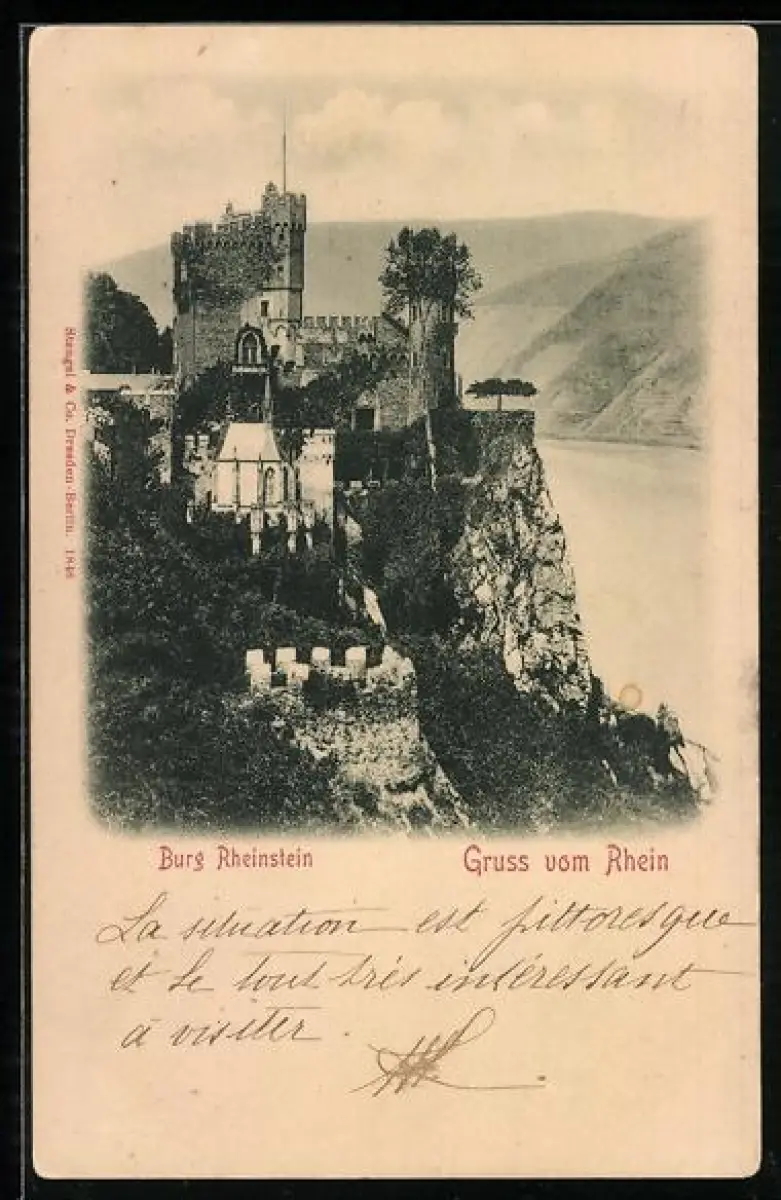 Stengel & Co. Dresden-Berlin. 1848
Burg Rheinstein
Gruss vom Rhein
La situation est pittoresque
et le tout très intéressant
à visiter.